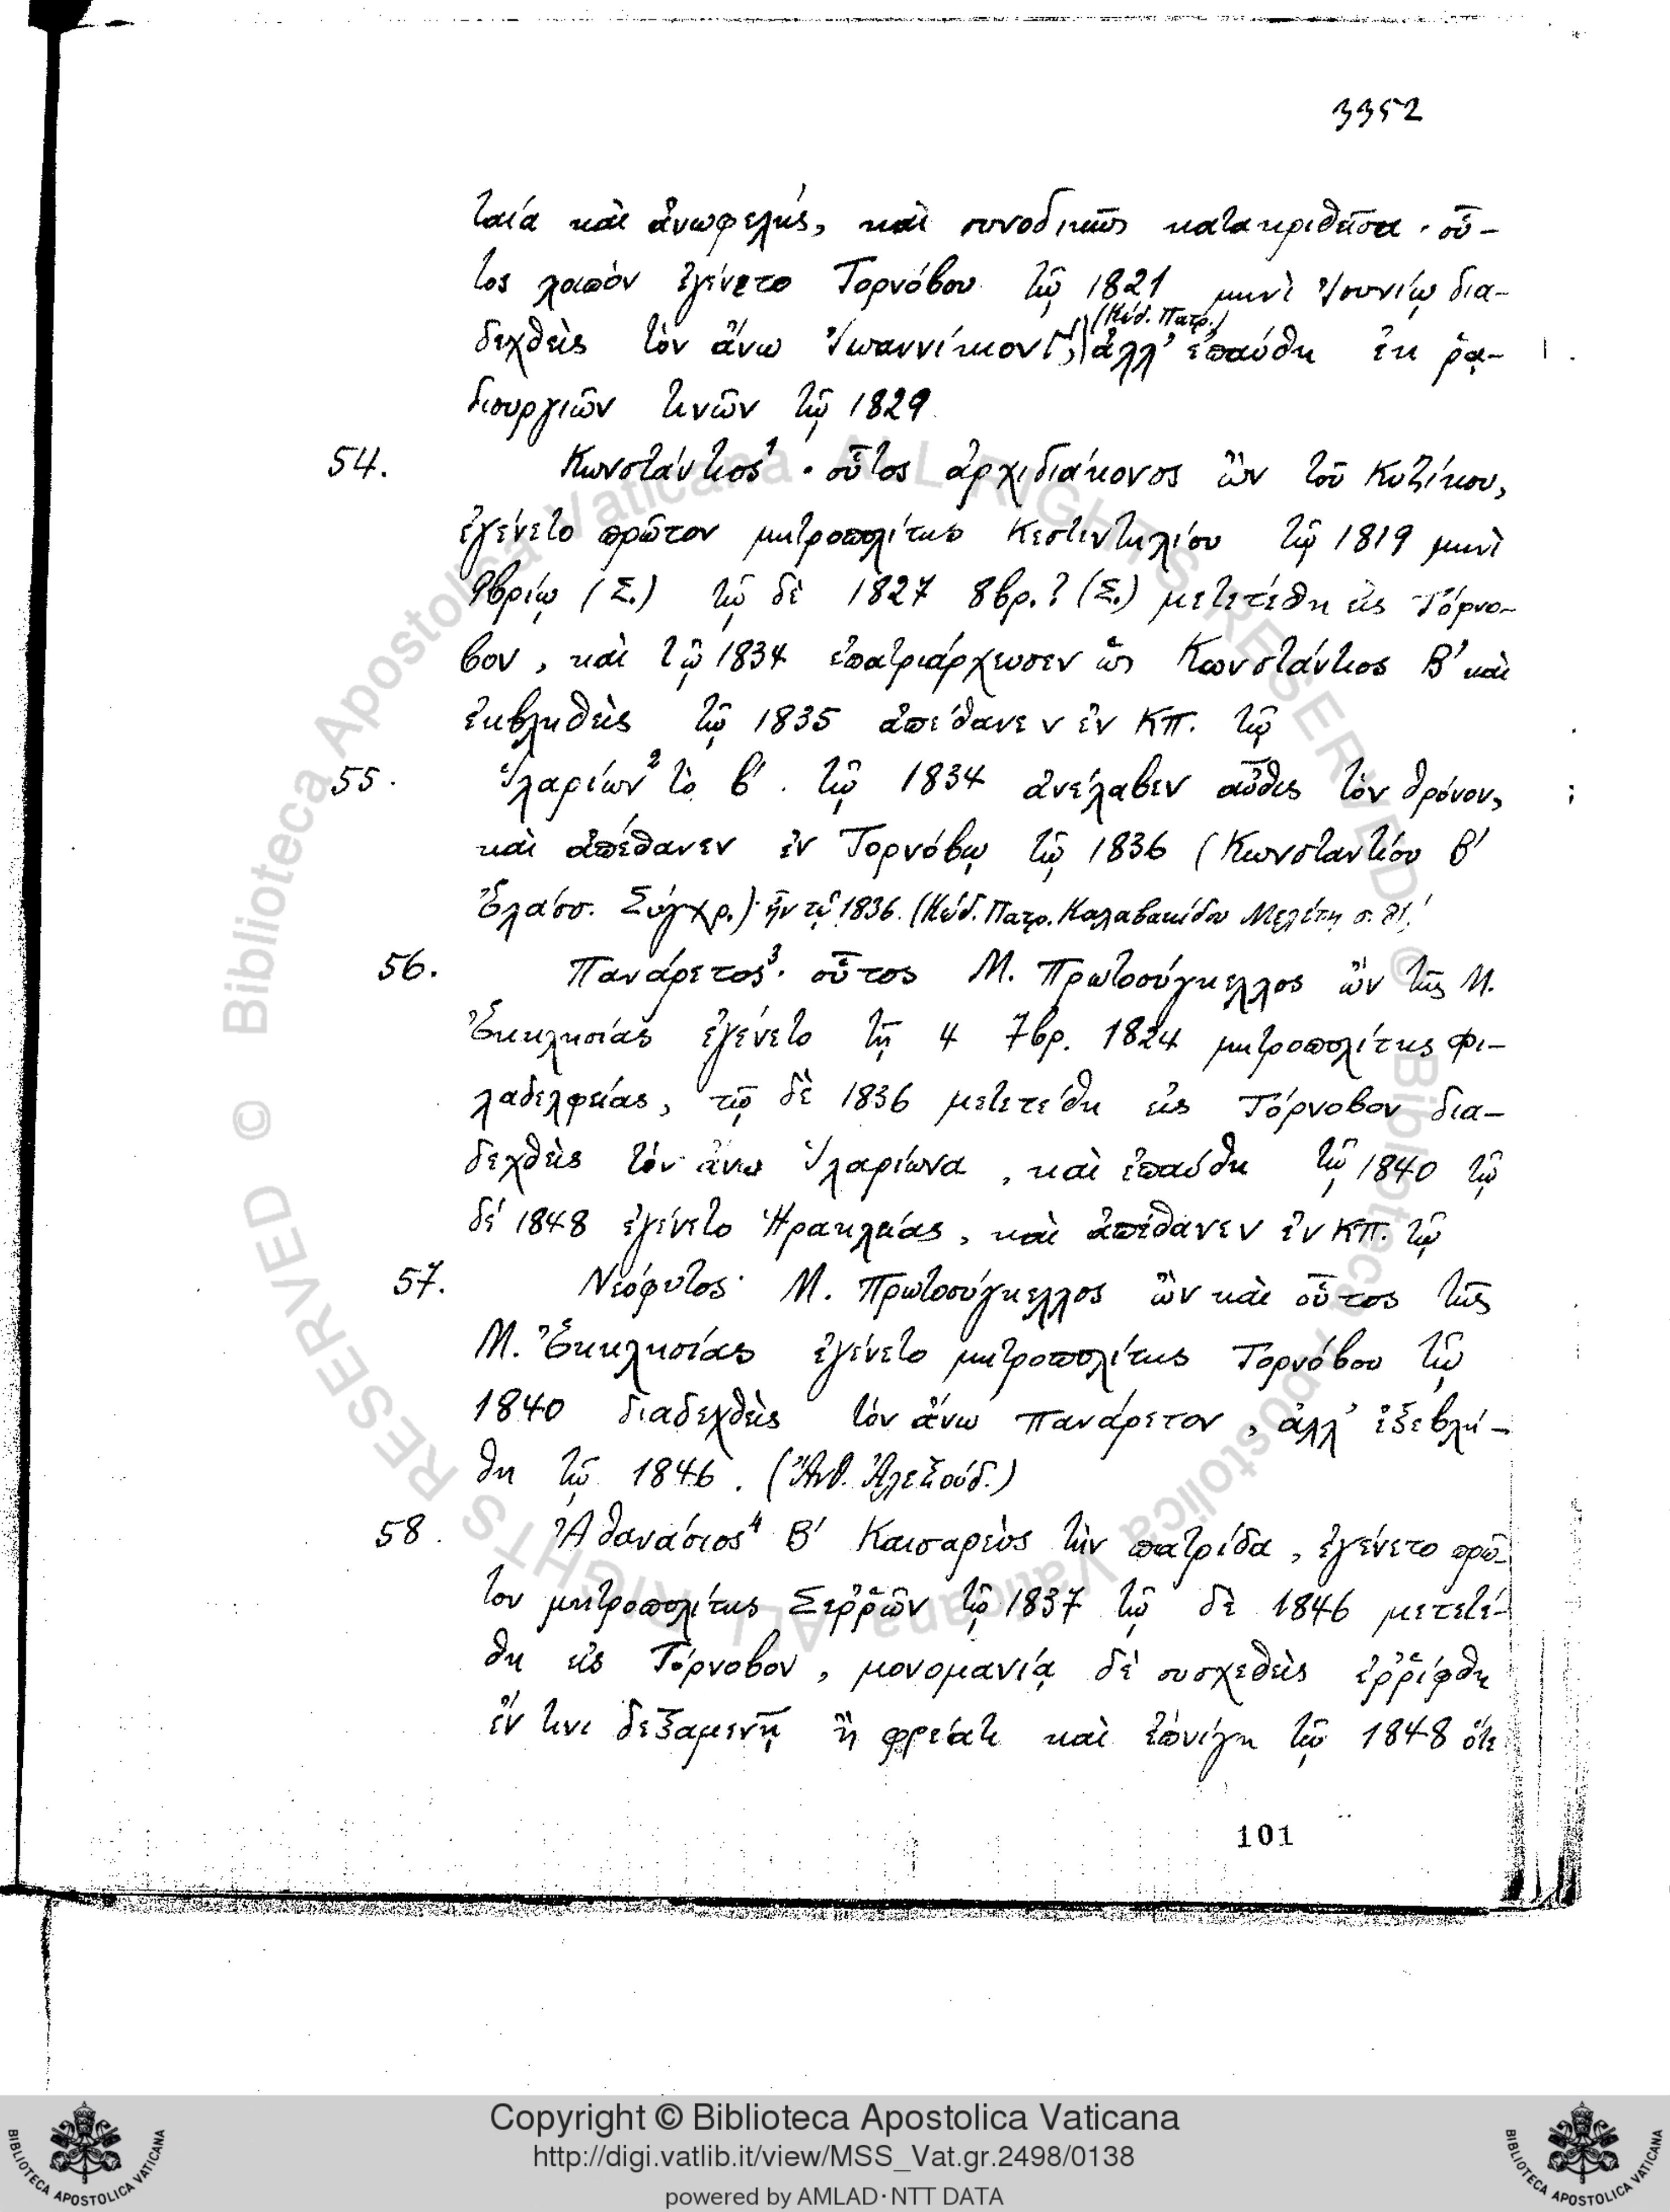 3352
ταία καὶ ἀνωφελής, καὶ συνοδικῶς κατακριθεῖσα· οὗ-
τος λοιπὸν ἐγένετο Τορνόβου τῷ 1821 μηνὶ Ἰουνίῳ δια-
(Κώδ. Πατρ.)
δεχθεὶς τὸν ἄνω Ἰωαννίκιον ἀλλ' ἐπαύθη ἐκ ῥᾳ-
διουργιῶν τινῶν τῷ 1829
54. Κωνστάντιος¹· οὗτος ἀρχιδιάκονος ὢν τοῦ Κυζίκου,
ἐγένετο πρῶτον μητροπολίτης Κεστεντηλίου τῷ 1819 μηνὶ
9βρίῳ (Σ.) τῷ δὲ 1827 8βρ.? (Σ.) μετετέθη εἰς Τόρνο-
βον, καὶ τῷ 1834 ἐπατριάρχευσεν ὡς Κωνστάντιος Β' καὶ
ἐκβληθεὶς τῷ 1835 ἀπέθανεν ἐν ΚΠ. τῷ
55. Ἱλαρίων² τὸ β'. τῷ 1834 ἀνέλαβεν αὖθις τὸν θρόνον,
καὶ ἀπέθανεν ἐν Τορνόβῳ τῷ 1836 (Κωνσταντίου Β'
Ἐλάσσ. Σύγχρ.) ἦν τῷ 1836. (Κώδ. Πατρ. Καλαβακίδου Μελέτη σ.
56. Πανάρετος³· οὗτος Μ. Πρωτοσύγκελλος ὢν τῆς Μ.
Ἐκκλησίας ἐγένετο τῇ 4 7βρ. 1824 μητροπολίτης Φι-
λαδελφείας, τῷ δὲ 1836 μετετέθη εἰς Τόρνοβον δια-
δεχθεὶς τὸν ἄνω Ἱλαρίωνα, καὶ ἐπαύθη τῷ 1840 τῷ
δέ 1848 ἐγένετο Ἡρακλείας, καὶ ἀπέθανεν ἐν ΚΠ. τῷ
57. Νεόφυτος· Μ. Πρωτοσύγκελλος ὢν καὶ οὗτος τῆς
Μ. Ἐκκλησίας ἐγένετο μητροπολίτης Τορνόβου τῷ
1840 διαδεχθεὶς τὸν ἄνω Πανάρετον, ἀλλ' ἐξεβλή-
θη τῷ 1846. (Ἄνθ. Ἀλεξούδ.)
58. Ἀθανάσιος⁴ Β' Καισαρεὺς τὴν πατρίδα, ἐγένετο πρῶ-
τον μητροπολίτης Σερῥῶν τῷ 1837 τῷ δὲ 1846 μετετέ-
θη εἰς Τόρνοβον, μονομανίᾳ δὲ συσχεθεὶς ἐῤῥίφθη
ἔν τινι δεξαμενῇ ἢ φρέατι καὶ ἐπνίγη τῷ 1848 ὅτε
101
Copyright © Biblioteca Apostolica Vaticana
http://digi.vatlib.it/view/MSS_Vat.gr.2498/0138
powered by AMLAD·NTT DATA
BIBLIOTECA APOSTOLICA VATICANA
BIBLIOTECA APOSTOLICA VATICANA
© Biblioteca Apostolica Vaticana ALL RIGHTS RESERVED © Biblioteca Apostolica Vaticana ALL RIGHTS RESERVED